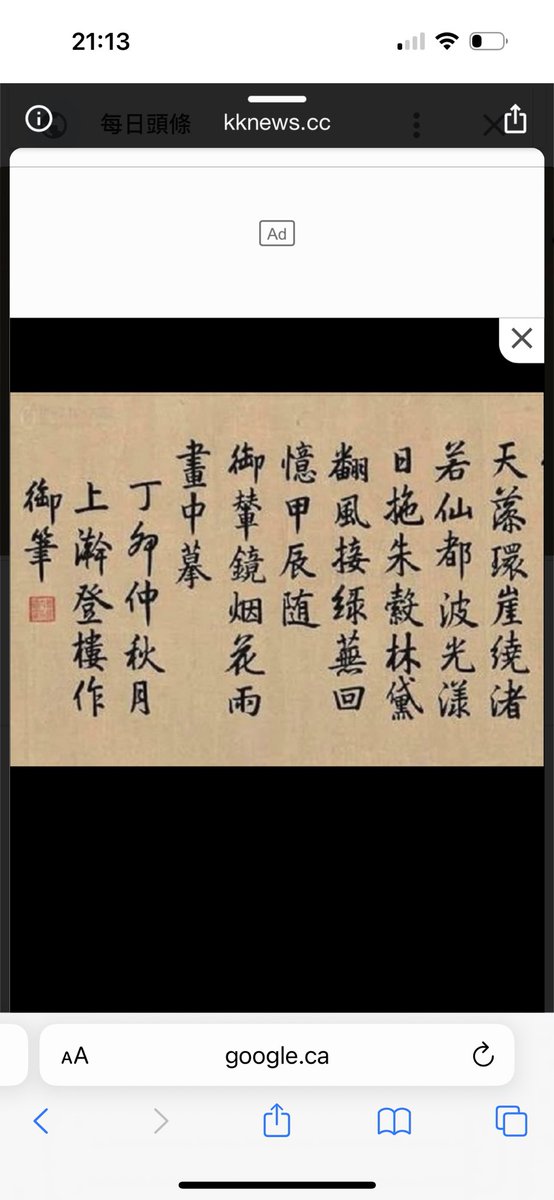 21:13
每日頭條
kknews.cc
Ad
天藻環崖繞渚
若仙都波光漾
日拖朱縠林黛
翻風接綠蕪回
憶甲辰随
御輦鏡烟花雨
畫中摹
丁卯仲秋月
上澣登樓作
御筆
AA google.ca